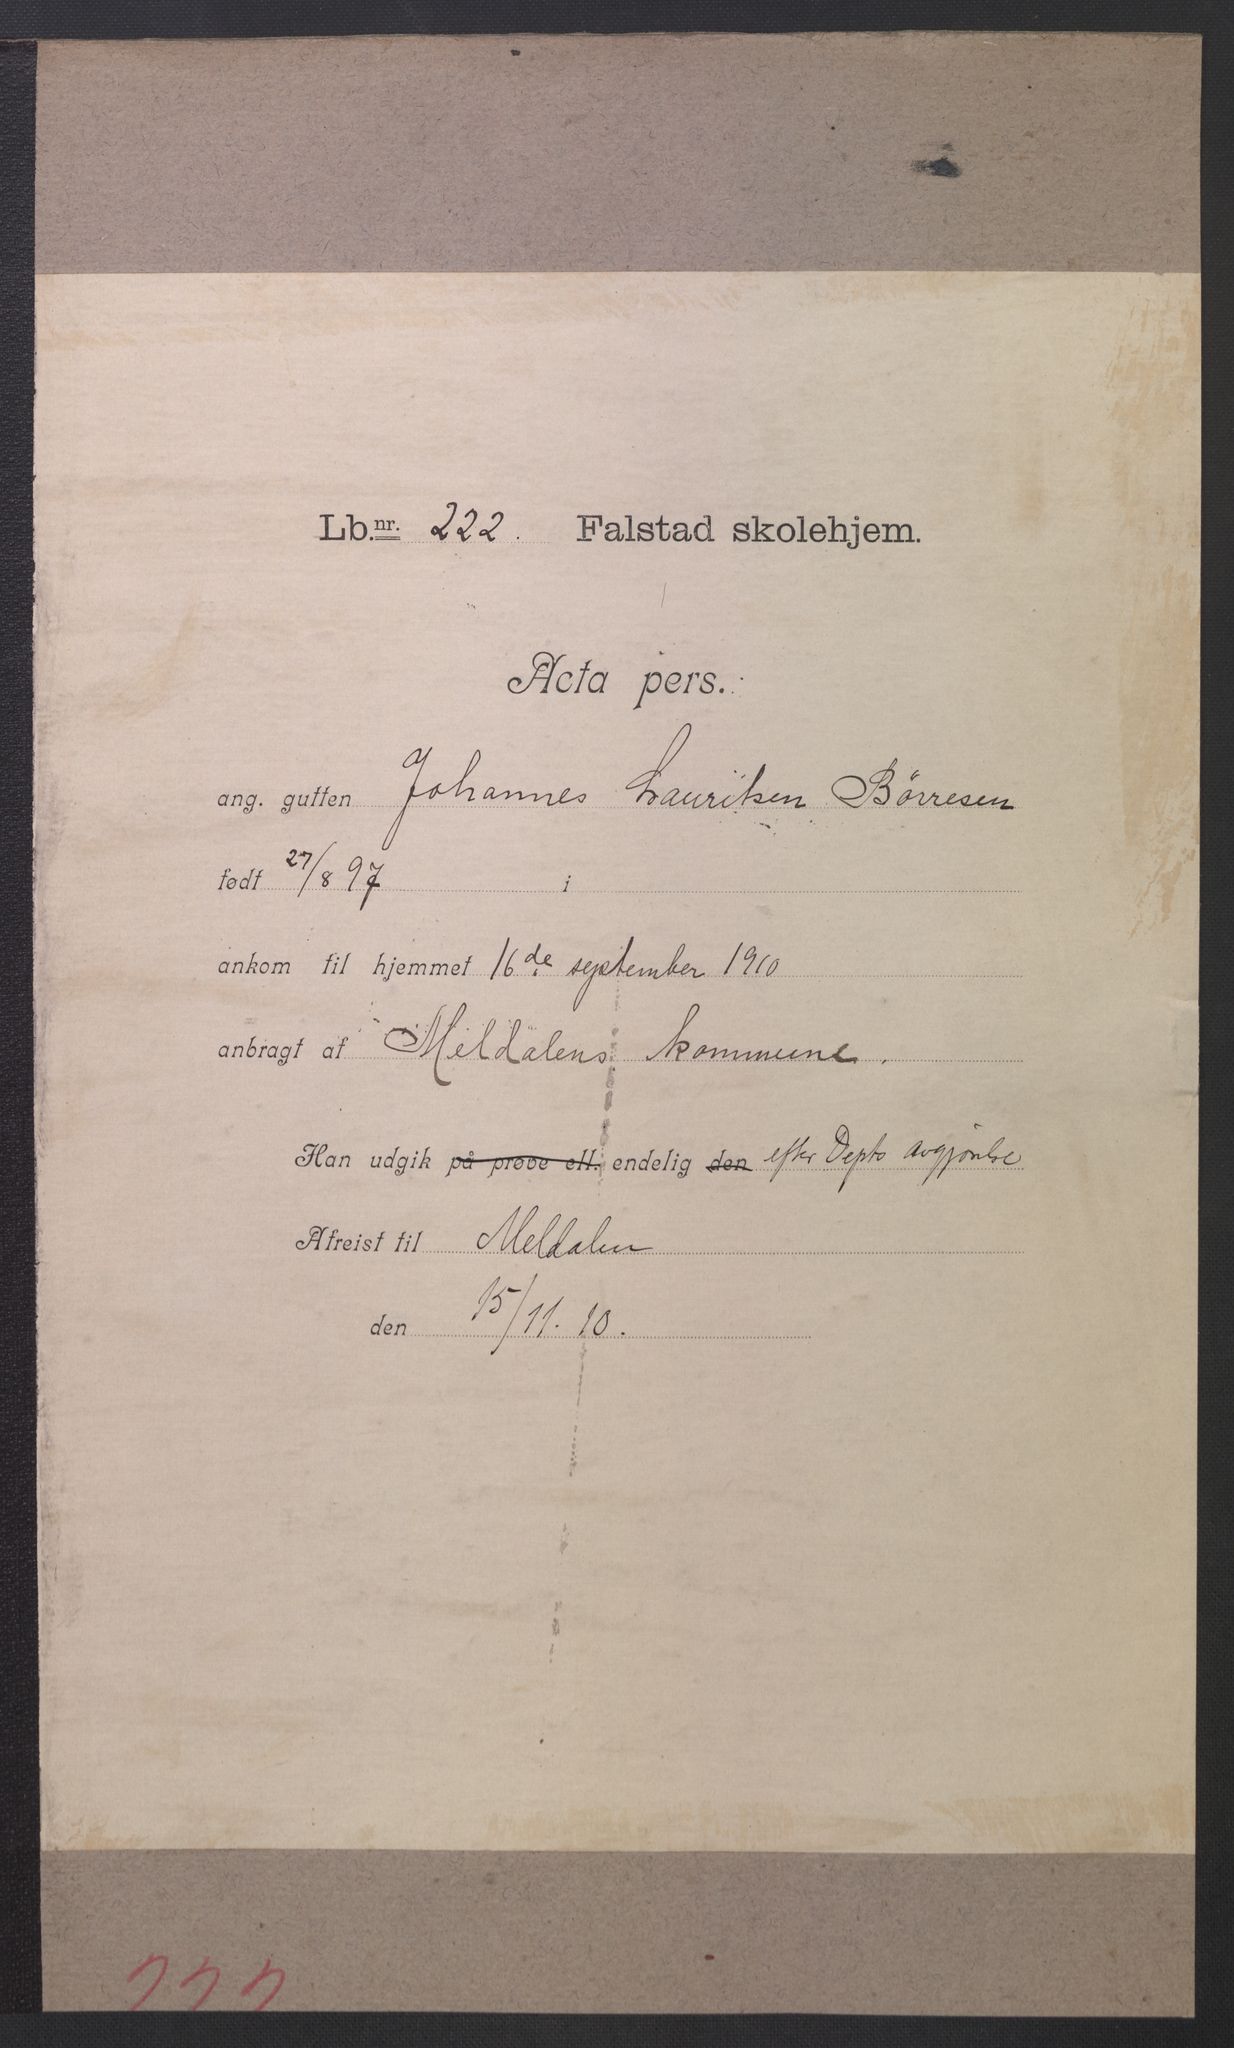 Lb.nr. 222. Falstad skolehjem.
Acta pers.:
ang. gutten Johannes Lauritsen Börresen
født 27/8 97 i
ankom til hjemmet 16de september 1910
anbragt af Meldalens kommune.
Han udgik på prøve ell. endelig den efter Depts avgjörelse
Afreist til Meldalen
den 15/11. 10.
222